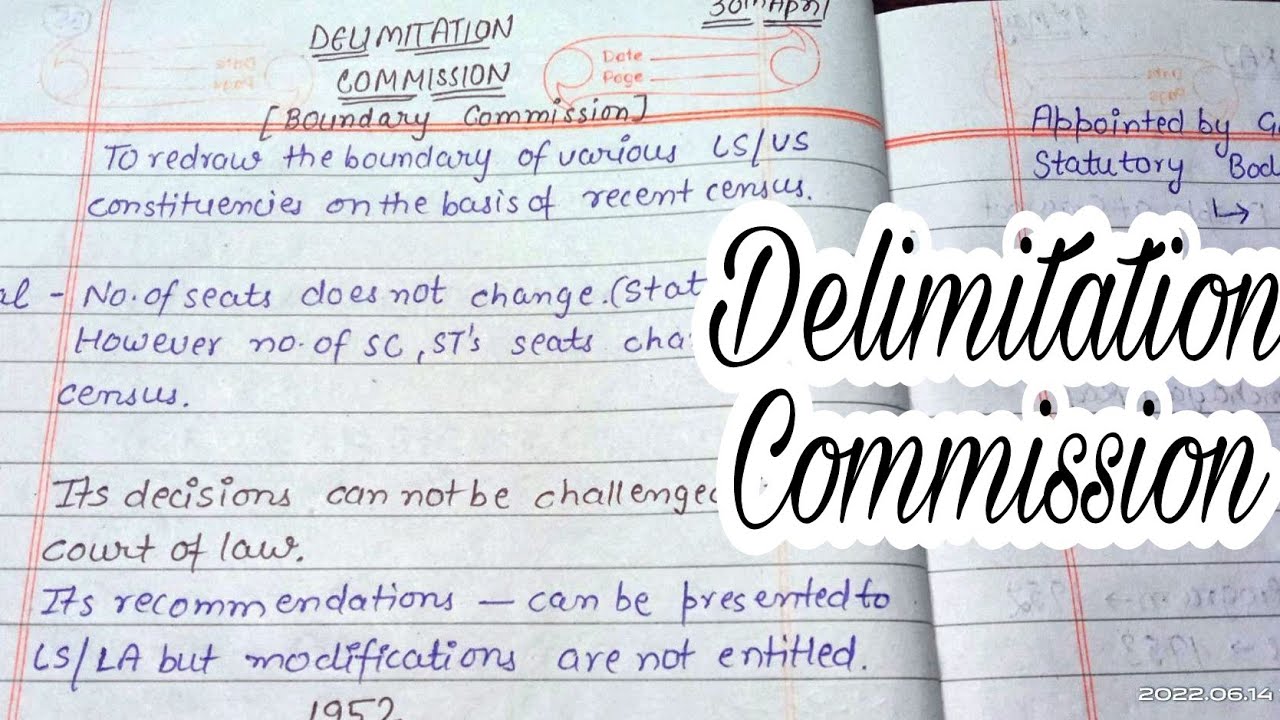 30th April
DELIMITATION
COMMISSION
[Boundary Commission]
Date
Page
To redraw the boundary of various LS/VS
constituencies on the basis of recent census.
al - No. of seats does not change. (Stat
However no. of SC, ST's seats cha
census.
Its decisions can not be challenged
court of law.
Its recommendations – can be presented to
LS/LA but modifications are not entitled.
1952
Appointed by G
Statutory Bod
↳
Delimitation
Commission
2022.06.14